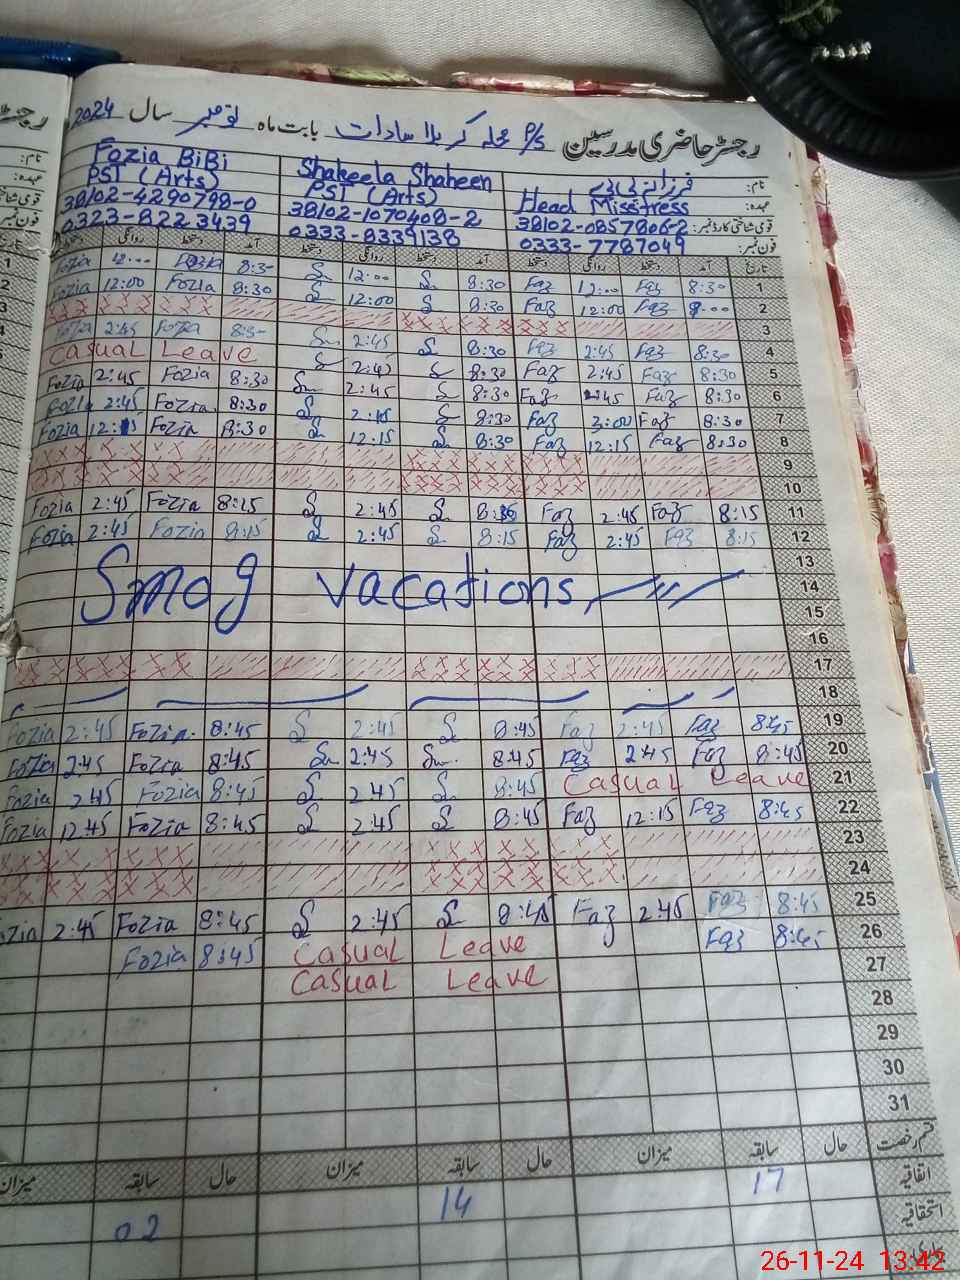 رجسٹر حاضری مدرسین P/S محلہ کربلا سادات بابت ماہ نومبر سال 2024
نام: فرزانہ بی بی Shakeela Shaheen Fozia BiBi
عہدہ: Head Misstress PST (Arts) PST (Arts)
قومی شناختی کارڈ نمبر: 38102-0857806-2 38102-1070408-2 38102-4290798-0
فون نمبر: 0333-7787049 0333-8339138 0323-8223439
تاریخ آمد دستخط روانگی دستخط آمد دستخط روانگی دستخط آمد دستخط روانگی دستخط
1 8:30 Faz 12:00 Faz 8:30 S 12:00 S 8:30 Fozia 12:00 Fozia
2 9:00 Faz 12:00 Faz 8:30 S 12:00 S 8:30 Fozia 12:00 Fozia
3
4 8:30 Faz 2:45 Faz 8:30 S 2:45 S 8:30 Fozia 2:45 Fozia
5 8:30 Faz 2:45 Faz 8:30 S 2:45 S Casual Leave
6 8:30 Faz 2:45 Faz 8:30 S 2:45 S 8:30 Fozia 2:45 Fozia
7 8:30 Faz 3:00 Faz 8:30 S 2:45 S 8:30 Fozia 2:45 Fozia
8 8:30 Faz 12:15 Faz 8:30 S 12:15 S 8:30 Fozia 12:15 Fozia
9
10
11 8:15 Faz 2:45 Faz S 2:45 S 8:15 Fozia 2:45 Fozia
12 8:15 Faz 2:45 Faz 8:15 S 2:45 S 8:15 Fozia 2:45 Fozia
13
14 Smog vacations
15
16
17
18
19 8:45 Faz 2:45 Faz 8:45 S 2:45 S 8:45 Fozia 2:45 Fozia
20 8:45 Faz 2:45 Faz 8:45 S 2:45 S 8:45 Fozia 2:45 Fozia
21 Casual Leave 8:45 S 2:45 S 8:45 Fozia 2:45 Fozia
22 8:45 Faz 12:15 Faz 8:45 S 2:45 S 8:45 Fozia 12:45 Fozia
23
24
25 8:45 Faz 2:45 Faz 8:45 S 2:45 S 8:45 Fozia 2:45 Fozia
26 8:45 Faz Casual Leave 8:45 Fozia
27 Casual Leave
28
29
30
31
قسم رخصت حال سابقہ میزان حال سابقہ میزان حال سابقہ میزان
اتفاقیہ 17 14 02
استحقاقیہ
26-11-24 13:42